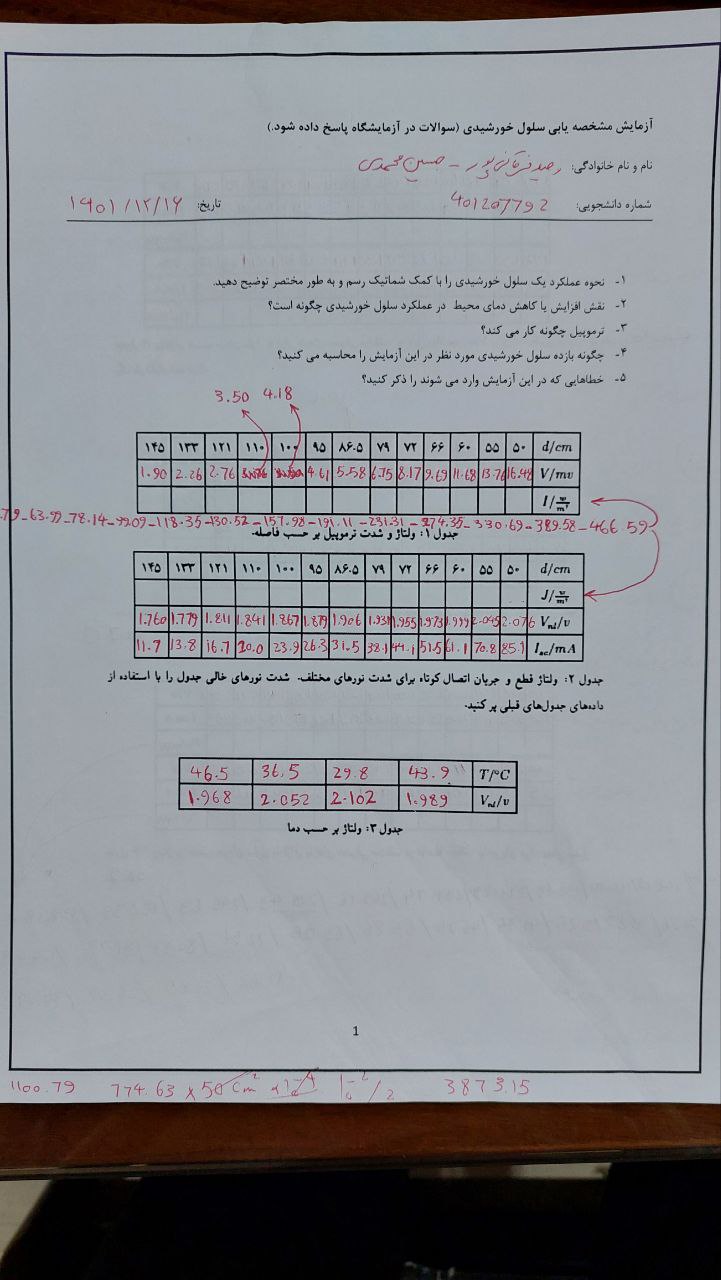 آزمایش مشخصه یابی سلول خورشیدی (سوالات در آزمایشگاه پاسخ داده شود.)
نام و نام خانوادگی: - حسین محمدی
شماره دانشجویی: 401207792 تاریخ: 1401/12/16
۱- نحوه عملکرد یک سلول خورشیدی را با کمک شماتیک رسم و به طور مختصر توضیح دهید.
۲- نقش افزایش یا کاهش دمای محیط در عملکرد سلول خورشیدی چگونه است؟
۳- ترموپیل چگونه کار می کند؟
۴- چگونه بازده سلول خورشیدی مورد نظر در این آزمایش را محاسبه می کنید؟
۵- خطاهایی که در این آزمایش وارد می شوند را ذکر کنید؟
3.50 4.18
۱۴۵ ۱۳۳ ۱۲۱ ۱۱۰ ۱۰۰ ۹۵ ۸۶.۵ ۷۹ ۷۲ ۶۶ ۶۰ ۵۵ ۵۰ d/cm
1.90 2.26 2.76 4.61 5.58 6.75 8.17 9.69 11.68 13.76 16.48 V/mv
I/w/m²
79-63.99-78.14-99.09-118.35-130.52-157.98-191.11-231.31-274.35-330.69-389.58-466.59
جدول ۱: ولتاژ و شدت ترموپیل بر حسب فاصله.
۱۴۵ ۱۳۳ ۱۲۱ ۱۱۰ ۱۰۰ ۹۵ ۸۶.۵ ۷۹ ۷۲ ۶۶ ۶۰ ۵۵ ۵۰ d/cm
J/w/m²
1.760 1.779 1.811 1.841 1.867 1.879 1.906 1.931 1.955 1.973 1.999 2.045 2.076 Vnl/v
11.7 13.8 16.7 20.0 23.9 26.3 31.5 38.1 44.1 51.5 61.1 70.8 85.1 Isc/mA
جدول ۲: ولتاژ قطع و جریان اتصال کوتاه برای شدت نورهای مختلف. شدت نورهای خالی جدول را با استفاده از
داده‌های جدول‌های قبلی پر کنید.
46.5 36.5 29.8 43.9 T/°C
1.968 2.052 2.102 1.989 Vnl/v
جدول ۳: ولتاژ بر حسب دما
1
1100.79 774.63 × 50 cm² 10⁻² /2 3873.15